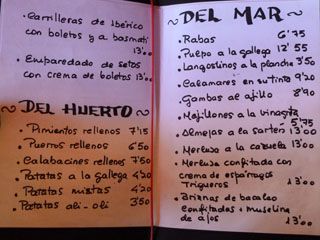 · Carrilleras de Ibérico
con boletos y a basmati
13'00
· Emparedado de setas
con crema de boletos 13'00
~ DEL HUERTO ~
· Pimientos rellenos 7'15
· Puerros rellenos 6'50
· Calabacines rellenos 7'50
· Patatas a la gallega 4'20
· Patatas mixtas 4'20
· Patatas ali-oli 3'50
~ DEL MAR ~
· Rabas 6'75
· Pulpo a la gallega 12'55
· Langostinos a la plancha 3'50
· Calamares en su tinta 9'20
· Gambas al ajillo 8'90
· Mejillones a la vinagreta
5'75
· Almejas a la sartén 13'00
· Merluza a la cazuela 13'00
· Merluza confitada con
crema de espárragos
Trigueros 13'00
· Brianas de bacalao
confitadas + muselina de
ajos 13'00